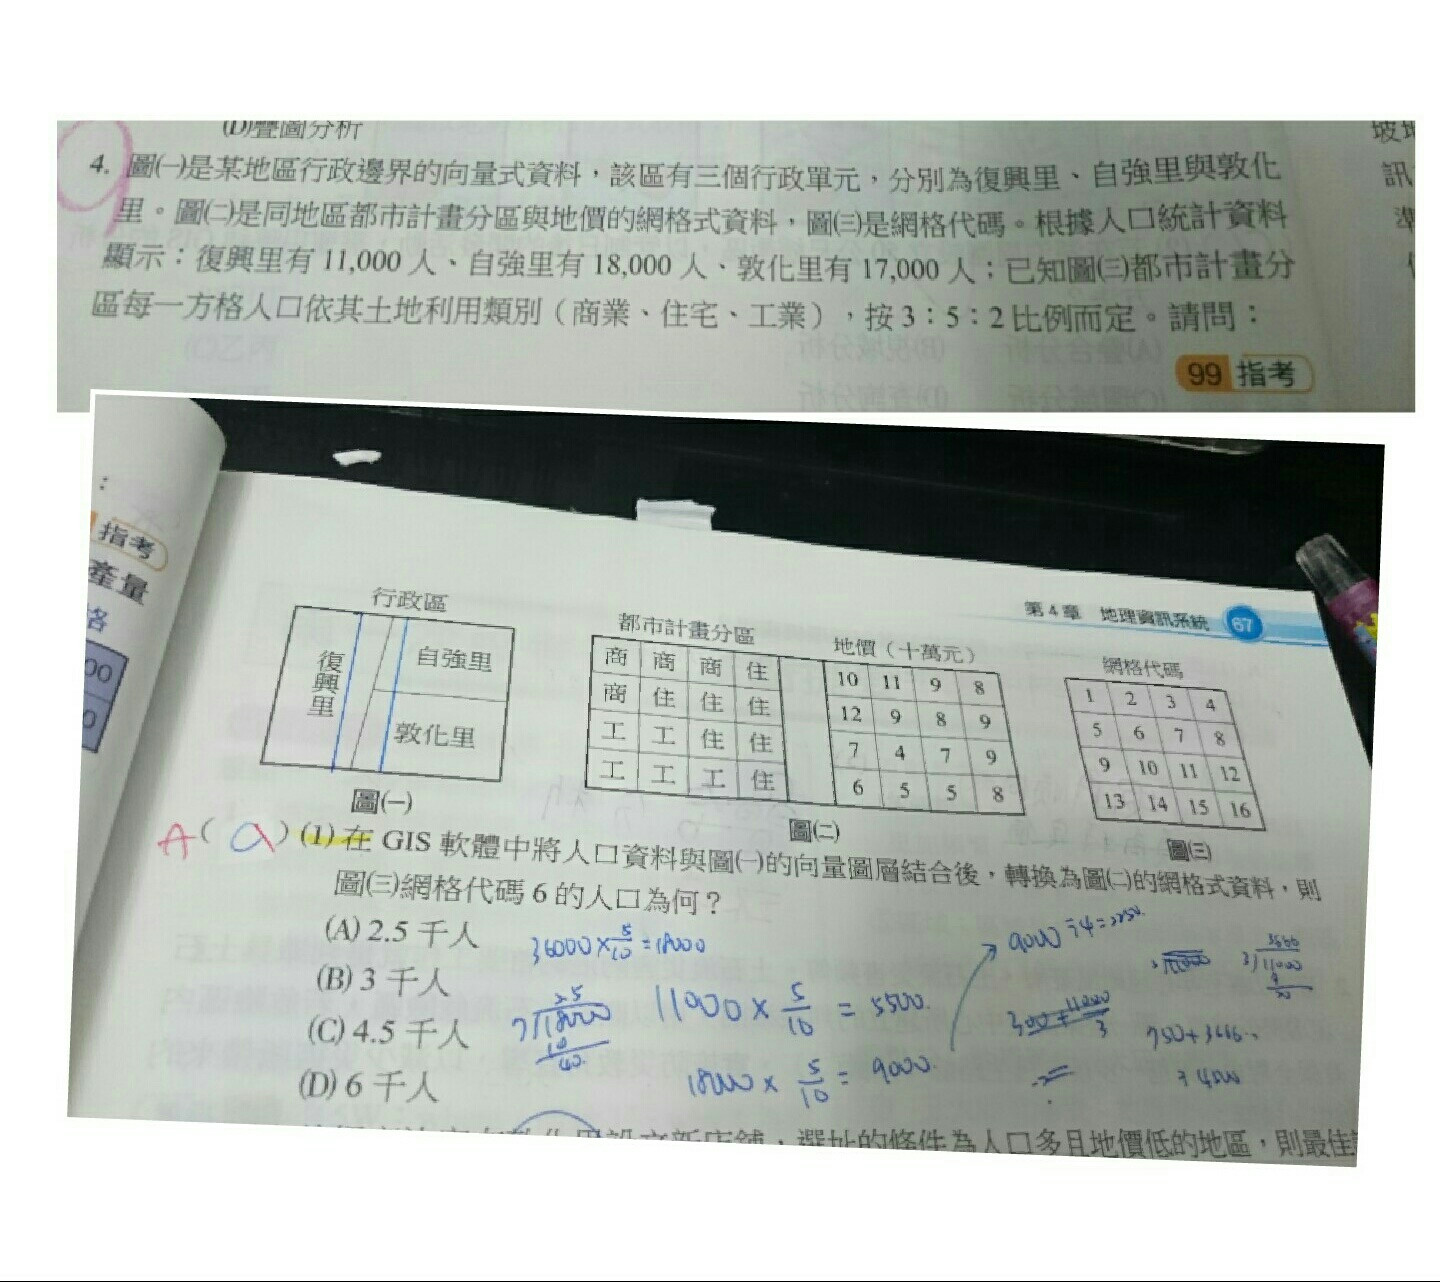 (D)疊圖分析
4. 圖㈠是某地區行政邊界的向量式資料，該區有三個行政單元，分別為復興里、自強里與敦化
里。圖㈡是同地區都市計畫分區與地價的網格式資料，圖㈢是網格代碼。根據人口統計資料
顯示：復興里有 11,000 人、自強里有 18,000 人、敦化里有 17,000 人；已知圖㈢都市計畫分
區每一方格人口依其土地利用類別（商業、住宅、工業），按 3：5：2 比例而定。請問：
99 指考
坡地
訊
準
指考
產量
格
00
0
第 4 章 地理資訊系統 67
行政區
復興里
自強里
敦化里
圖㈠
都市計畫分區
商 商 商 住
商 住 住 住
工 工 住 住
工 工 工 住
地價（十萬元）
10 11 9 8
12 9 8 9
7 4 7 9
6 5 5 8
圖㈡
網格代碼
1 2 3 4
5 6 7 8
9 10 11 12
13 14 15 16
圖㈢
A ( a ) (1) 在 GIS 軟體中將人口資料與圖㈠的向量圖層結合後，轉換為圖㈡的網格式資料，則
圖㈢網格代碼 6 的人口為何？
(A) 2.5 千人
(B) 3 千人
(C) 4.5 千人
(D) 6 千人
36000 × 5/10 = 18000
11000 × 5/10 = 5500
18000 × 5/10 = 9000
9000 ÷ 4 = 2250
選址的條件為人口多且地價低的地區，則最佳